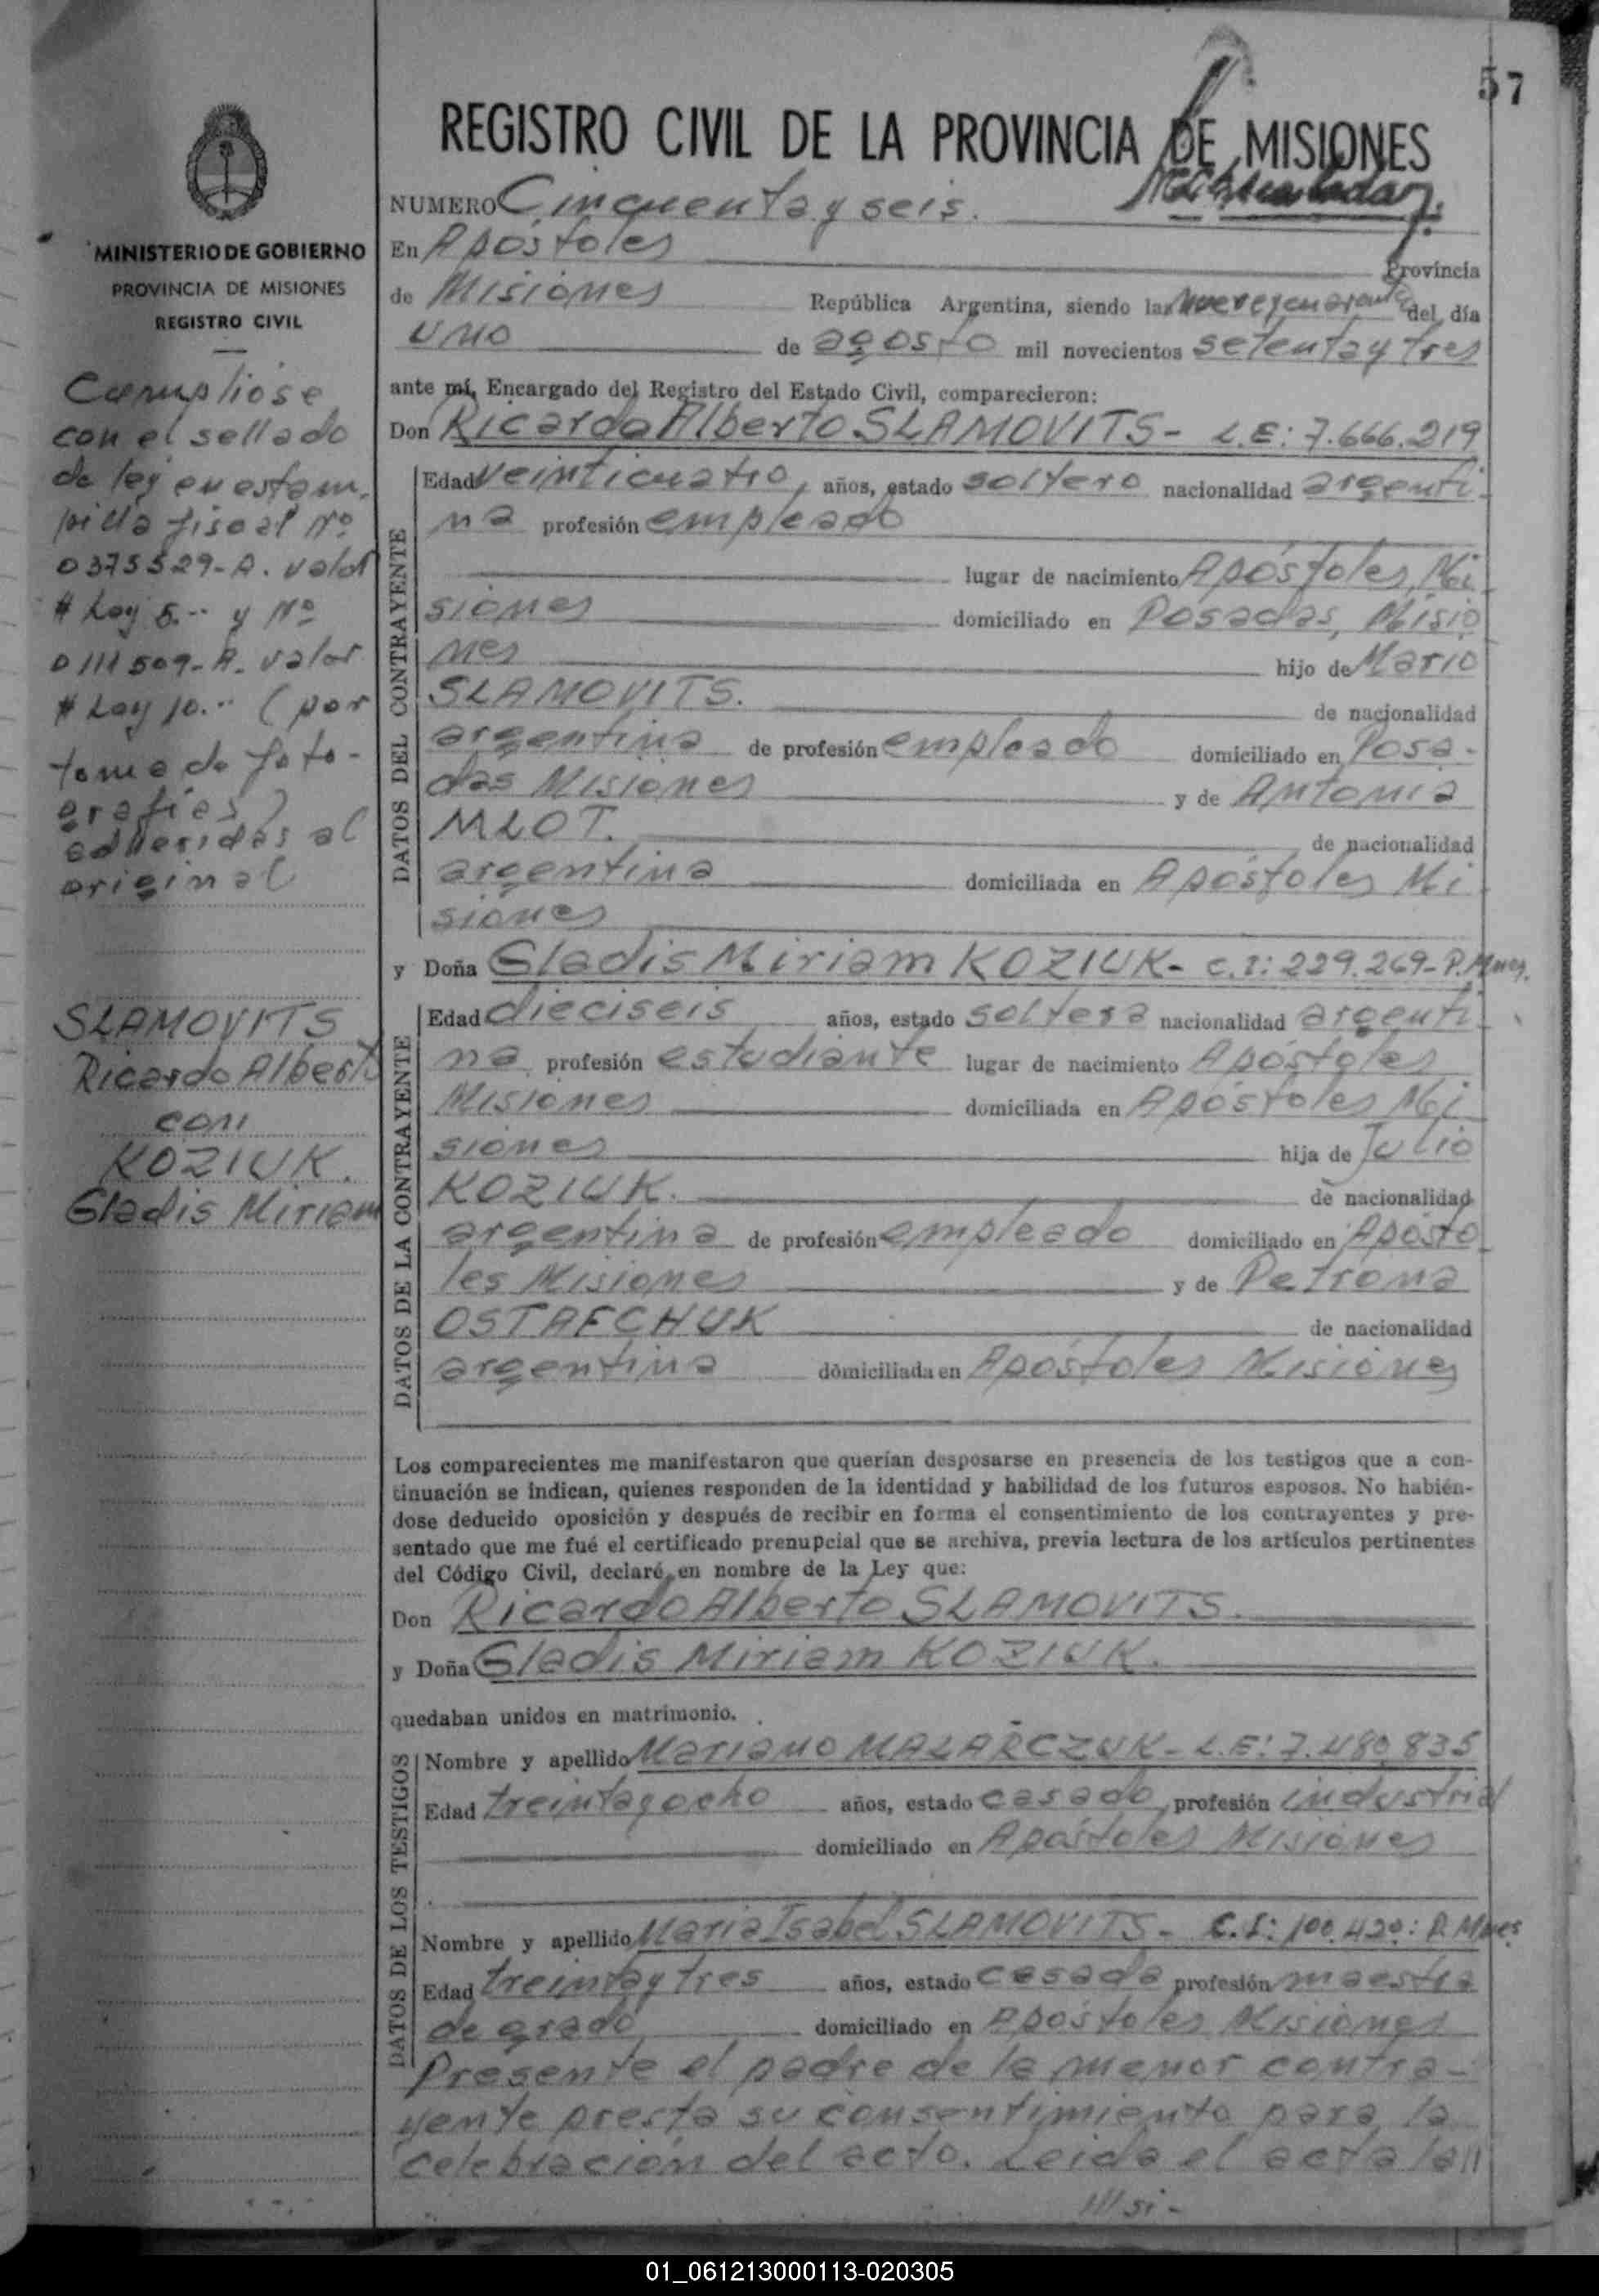 57
REGISTRO CIVIL DE LA PROVINCIA DE MISIONES
MINISTERIO DE GOBIERNO
PROVINCIA DE MISIONES
REGISTRO CIVIL
Cumplióse
con el sellado
de ley en estam-
pilla fiscal Nº
0375529-A. valor
$ Ley 5.-- y Nº
0111509-A. valor
$ Ley 10.-- (por
toma de foto-
grafías)
adheridas al
original
SLAMOVITS
Ricardo Alberto
con
KOZIUK.
Gladis Miriam
NUMERO Cincuenta y seis.
En Apóstoles Provincia
de Misiones República Argentina, siendo las nueve y cuarenta del día
uno de agosto mil novecientos setenta y tres
ante mí, Encargado del Registro del Estado Civil, comparecieron:
Don Ricardo Alberto SLAMOVITS- L.E: 7.666.219
DATOS DEL CONTRAYENTE
Edad veinticuatro, años, estado soltero nacionalidad argenti-
na profesión empleado
lugar de nacimiento Apóstoles, Mi-
siones domiciliado en Posadas, Misio
nes hijo de Mario
SLAMOVITS. de nacionalidad
argentina de profesión empleado domiciliado en Posa-
das Misiones y de Antonia
MLOT. de nacionalidad
argentina domiciliada en Apóstoles Mi-
siones
y Doña Gladis Miriam KOZIUK- C.I: 229.269- P.Mnes.
DATOS DE LA CONTRAYENTE
Edad dieciseis años, estado soltera nacionalidad argenti-
na profesión estudiante lugar de nacimiento Apóstoles
Misiones domiciliada en Apóstoles Mi-
siones hija de Julio
KOZIUK. de nacionalidad
argentina de profesión empleado domiciliado en Aposto
les Misiones y de Petrona
OSTAFCHUK de nacionalidad
argentina domiciliada en Apóstoles Misiones
Los comparecientes me manifestaron que querían desposarse en presencia de los testigos que a con-
tinuación se indican, quienes responden de la identidad y habilidad de los futuros esposos. No habién-
dose deducido oposición y después de recibir en forma el consentimiento de los contrayentes y pre-
sentado que me fué el certificado prenupcial que se archiva, previa lectura de los artículos pertinentes
del Código Civil, declaré en nombre de la Ley que:
Don Ricardo Alberto SLAMOVITS.
y Doña Gladis Miriam KOZIUK.
quedaban unidos en matrimonio.
DATOS DE LOS TESTIGOS
Nombre y apellido Mariano MALARCZUK- L.E: 7.480.835
Edad treinta y ocho años, estado casado, profesión industrial
domiciliado en Apóstoles Misiones
Nombre y apellido Maria Isabel SLAMOVITS- C.I: 100.420: P. Mnes
Edad treinta y tres años, estado casada profesión maestra
de grado domiciliado en Apóstoles Misiones
Presente el padre de la menor contra-
yente presta su consentimiento para la
celebración del acto. Leida el acta la//
///si-
01_061213000113-020305